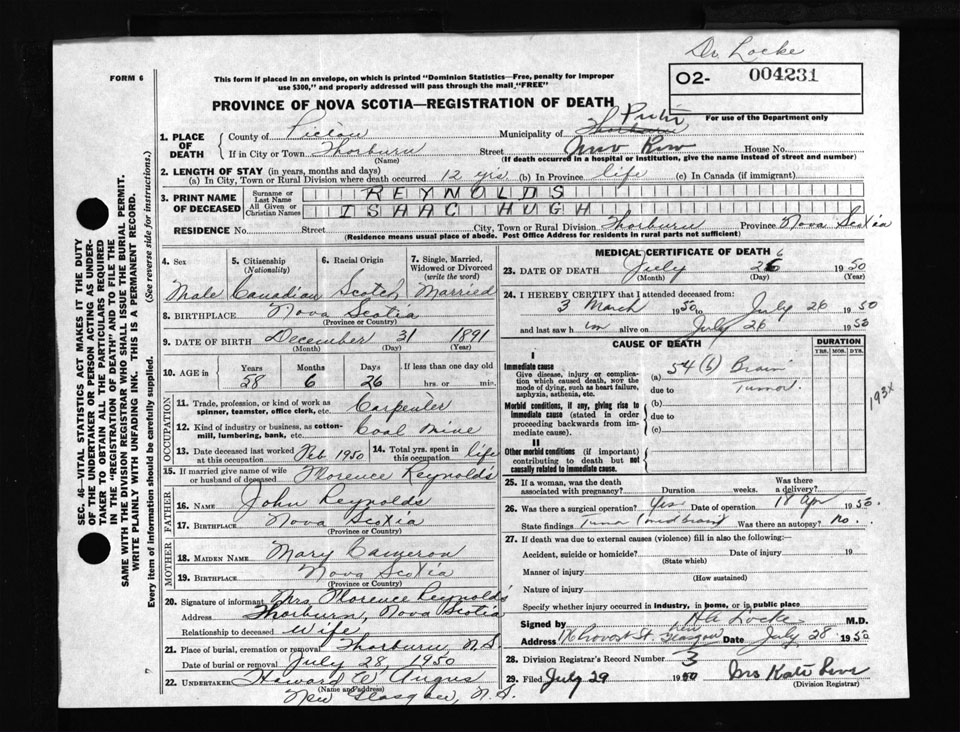 Dr Locke
FORM 6
This form if placed in an envelope, on which is printed "Dominion Statistics—Free, penalty for improper
use $300," and properly addressed will pass through the mail "FREE"
O2- 004231
PROVINCE OF NOVA SCOTIA—REGISTRATION OF DEATH
For use of the Department only
1. PLACE OF DEATH
County of Pictou Municipality of Thorburn Pictou
If in City or Town Thorburn Street Row House No.
(Name) (If death occurred in a hospital or institution, give the name instead of street and number)
2. LENGTH OF STAY (in years, months and days)
(a) In City, Town or Rural Division where death occurred 12 yrs. (b) In Province life (c) In Canada (if immigrant)
3. PRINT NAME OF DECEASED
Surname or Last Name REYNOLDS
All Given or Christian Names ISAAC HUGH
RESIDENCE No. Street City, Town or Rural Division Thorburn Province Nova Scotia
(Residence means usual place of abode. Post Office Address for residents in rural parts not sufficient)
4. Sex 5. Citizenship (Nationality) 6. Racial Origin 7. Single, Married, Widowed or Divorced (write the word)
Male Canadian Scotch Married
8. BIRTHPLACE Nova Scotia
(Province or Country)
9. DATE OF BIRTH December 31 1891
(Month) (Day) (Year)
10. AGE in Years Months Days If less than one day old
58 6 26 hrs. or min.
OCCUPATION
11. Trade, profession, or kind of work as spinner, teamster, office clerk, etc. Carpenter
12. Kind of industry or business, as cotton-mill, lumbering, bank, etc. Coal Mine
13. Date deceased last worked at this occupation Feb 1950 14. Total yrs. spent in this occupation life
15. If married give name of wife or husband of deceased Florence Reynolds
FATHER
16. NAME John Reynolds
17. BIRTHPLACE Nova Scotia
(Province or Country)
MOTHER
18. MAIDEN NAME Mary Cameron
19. BIRTHPLACE Nova Scotia
(Province or Country)
20. Signature of informant Mrs Florence Reynolds
Address Thorburn, Nova Scotia
Relationship to deceased Wife
21. Place of burial, cremation or removal Thorburn, N.S.
Date of burial or removal July 28, 1950
22. UNDERTAKER Howard W Angus
(Name and address)
New Glasgow, N.S.
MEDICAL CERTIFICATE OF DEATH
6
23. DATE OF DEATH July 26 1950
(Month) (Day) (Year)
24. I HEREBY CERTIFY that I attended deceased from:
3 March 1950 to July 26 1950
and last saw him alive on July 26 1950
CAUSE OF DEATH DURATION
YRS. MOS. DYS.
I
Immediate cause
Give disease, injury or complication which caused death, NOT the mode of dying, such as heart failure, asphyxia, asthenia, etc.
(a) 54 (b) Brain
due to Tumor.
193X
Morbid conditions, if any, giving rise to immediate cause (stated in order proceeding backwards from immediate cause).
(b)
due to
(c)
II
Other morbid conditions (if important) contributing to death but not causally related to immediate cause.
25. If a woman, was the death associated with pregnancy? Duration weeks. Was there a delivery?
26. Was there a surgical operation? Yes Date of operation 18 Apr 1950
State findings Tumor Was there an autopsy? No.
27. If death was due to external causes (violence) fill in also the following:—
Accident, suicide or homicide? Date of injury 19
(State which)
Manner of injury
(How sustained)
Nature of injury
Specify whether injury occurred in industry, in home, or in public place
Signed by HA Locke M.D.
Address Provost St. New Glasgow Date July 28 1950
28. Division Registrar's Record Number 3
29. Filed July 29 1950 Mrs Kate
(Division Registrar)
SEC. 46—VITAL STATISTICS ACT MAKES IT THE DUTY
OF THE UNDERTAKER OR PERSON ACTING AS UNDER-
TAKER TO OBTAIN ALL THE PARTICULARS REQUIRED
IN THE "REGISTRATION OF DEATH" AND TO FILE THE
SAME WITH THE DIVISION REGISTRAR WHO SHALL ISSUE THE BURIAL PERMIT.
WRITE PLAINLY WITH UNFADING INK. THIS IS A PERMANENT RECORD.
Every item of information should be carefully supplied. (See reverse side for instructions.)